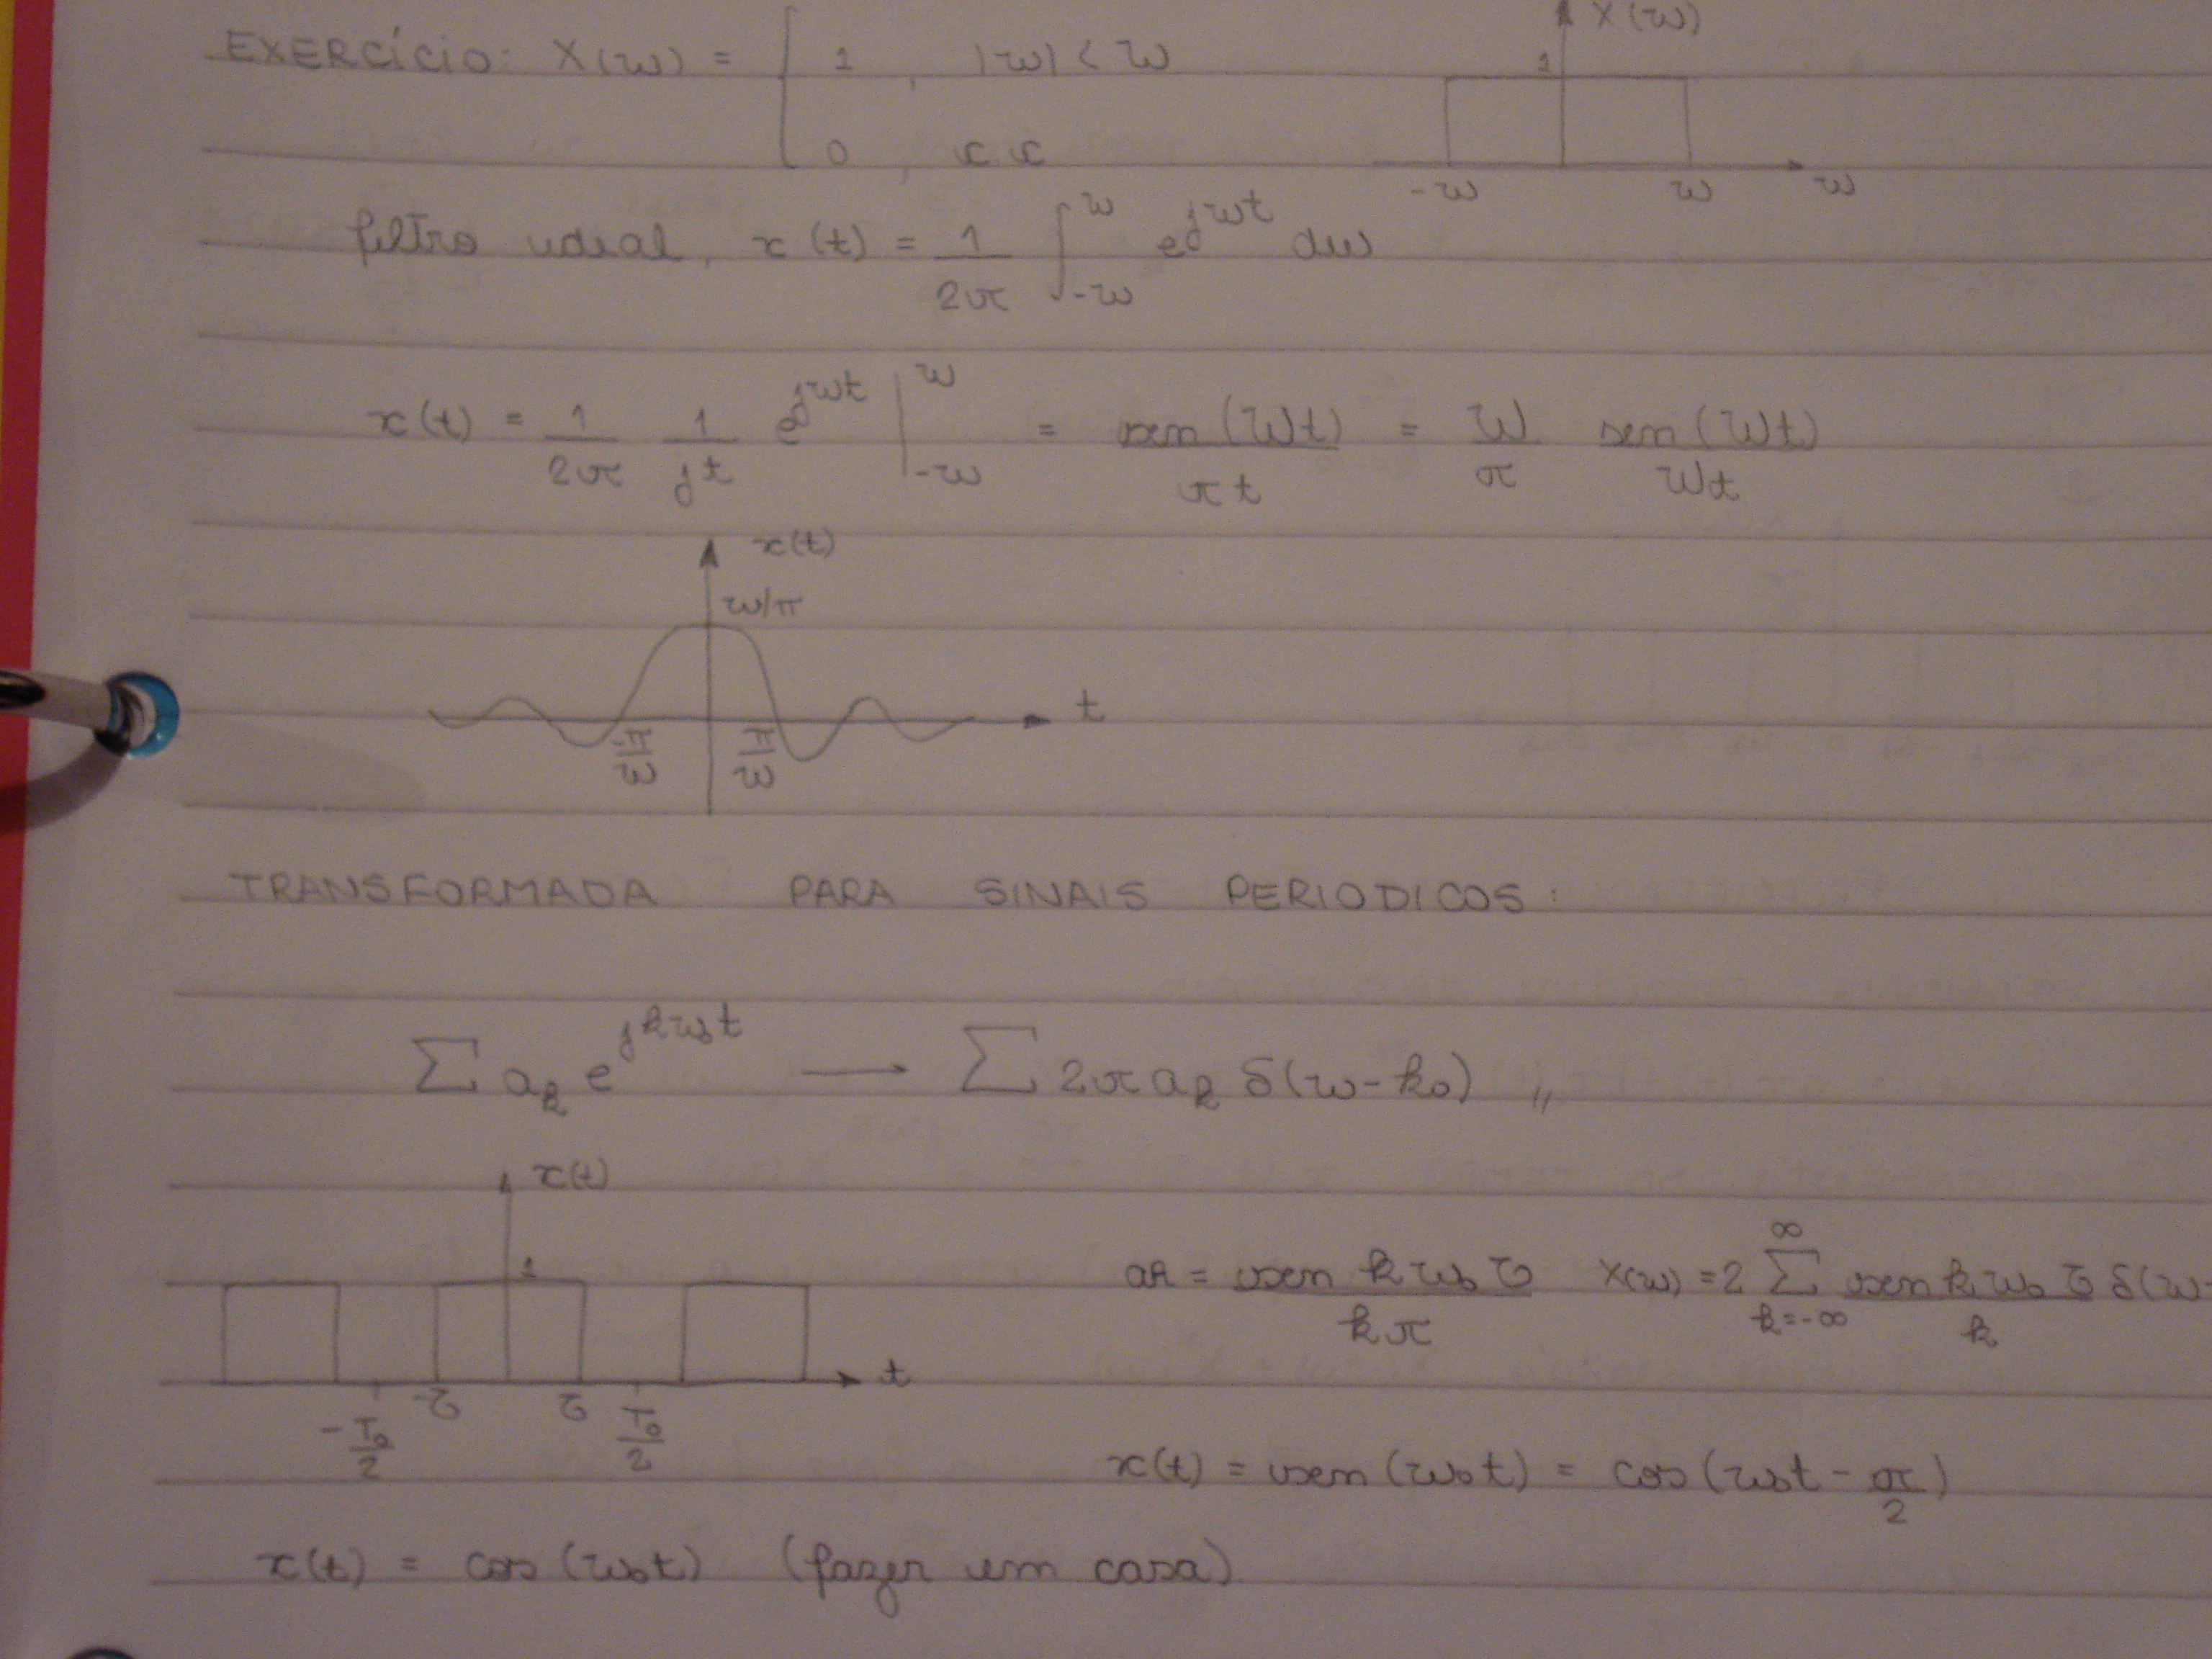 EXERCÍCIO: X(w) = { 1 , |w| < W
0 , cc
X(w)
1
-w w w
filtro ideal, x(t) = 1/2π ∫_{-w}^{w} e^{jwt} dw
x(t) = 1/2π 1/jt e^{jwt} |_{-w}^{w} = sen(Wt)/πt = W/π sen(Wt)/Wt
x(t)
w/π
t
-π/w π/w
TRANSFORMADA PARA SINAIS PERIODICOS:
∑ a_k e^{jkw₀t} → ∑ 2π a_k δ(w-k₀) ,,
x(t)
1
ak = sen k w₀ τ / kπ X(w) = 2 ∑_{k=-∞}^{∞} sen k w₀ τ / k δ(w-
t
-T₀/2 -τ τ T₀/2
x(t) = sen(w₀t) = cos(w₀t - π/2)
x(t) = cos(w₀t) (fazer em casa)